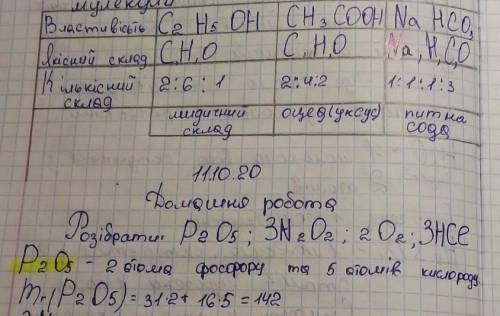 молекули
Властивість C2H5OH CH3COOH NaHCO3
Якісний склад C,H,O C,H,O Na,H,C,O
Кількісний склад 2:6:1 2:4:2 1:1:1:3
оцет(уксус) питна сода
склад
11.10.20
Домашня робота
Розібрати: P2O5; 3N2O2; 2O2; 3HCl
P2O5 - 2 атома фосфору та 5 атомів кислороду.
Mr(P2O5) = 31·2+16·5=142